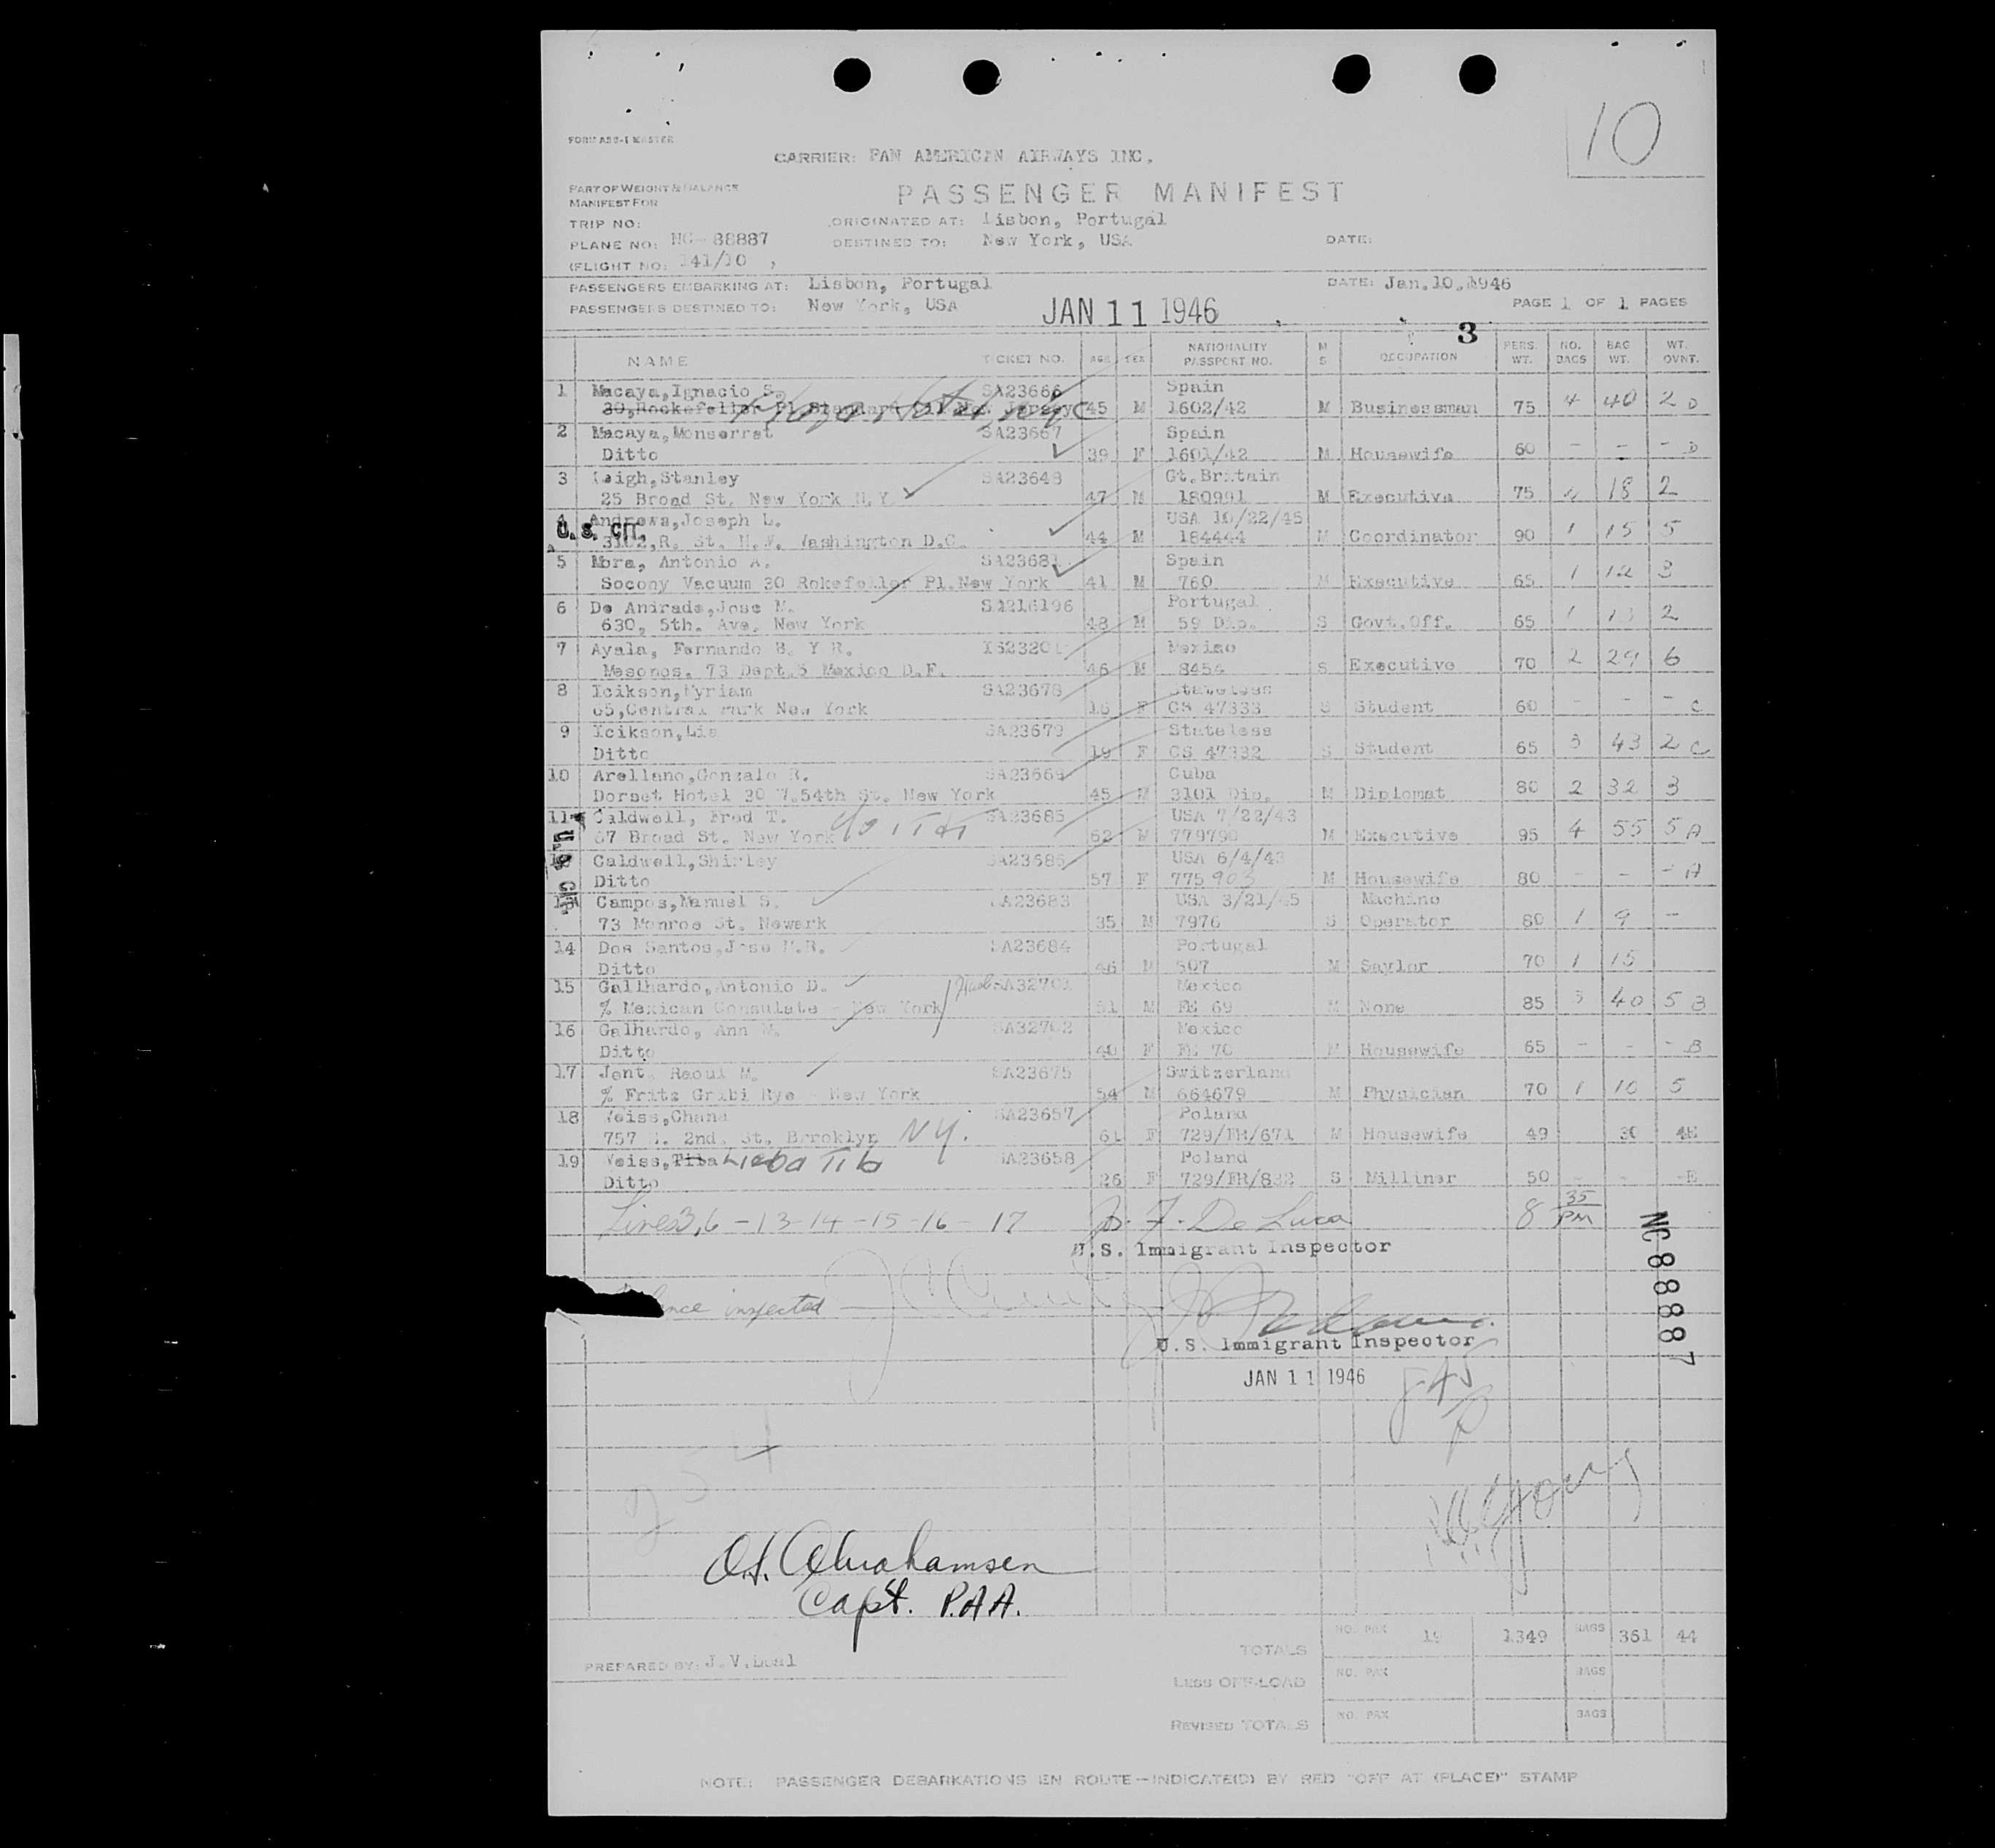 10
FORM ABS-1 MASTER
CARRIER: PAN AMERICAN AIRWAYS INC.
PART OF WEIGHT & BALANCE
MANIFEST FOR
PASSENGER MANIFEST
TRIP NO:
ORIGINATED AT: Lisbon, Portugal
PLANE NO: NC-88887
DESTINED TO: New York, USA
DATE:
(FLIGHT NO: 141/10
PASSENGERS EMBARKING AT: Lisbon, Portugal
DATE: Jan.10.1946
PASSENGERS DESTINED TO: New York, USA
JAN 11 1946
PAGE 1 OF 1 PAGES
3
NAME TICKET NO. AGE SEX NATIONALITY PASSPORT NO. M S OCCUPATION PERS. WT. NO. BAGS BAG WT. WT. OVNT.
1 Macaya,Ignacio S. SA23666 Spain
30,Rockefeller Pl Standart Oil New Jersey 45 M 1602/42 M Businessman 75 4 40 2 D
2 Macaya,Monserrat SA23667 Spain
Ditto 39 F 1601/42 M Housewife 60 - - - D
3 Leigh,Stanley SA23648 Gt.Britain
25 Broad St. New York N.Y. 47 M 180991 M Executive 75 18 2
4 Andrews,Joseph L. USA 10/22/45
U.S. CIT.
3102,R. St. N.W. Washington D.C. 44 M 184444 M Coordinator 90 1 15 5
5 Mora, Antonio A. SA23681 Spain
Socony Vacuum 30 Rokefeller Pl.New York 41 M 760 M Executive 65 1 12 3
6 De Andrade,Jose M. SA216196 Portugal
630, 5th. Ave. New York 48 M 59 Dip. S Govt.Off. 65 1 13 2
7 Ayala, Fernando B. Y R. IS23201 Mexico
Mesones. 73 Dept.5 Mexico D.F. 46 M 8454 S Executive 70 2 29 6
8 Icikson,Myriam SA23678 Stateless
65,Central Park New York 16 F CS 47333 S Student 60 - - - C
9 Icikson,Lia SA23679 Stateless
Ditto 19 F CS 47332 S Student 65 3 43 2 C
10 Arellano,Gonzalo R. SA23669 Cuba
Dorset Hotel 30 W.54th St. New York 45 M 3101 Dip. M Diplomat 80 2 32 3
11 Caldwell, Fred T. SA23685 USA 7/22/43
67 Broad St. New York 62 M 779790 M Executive 95 4 55 5 A
U.S. CIT.
12 Caldwell,Shirley SA23686 USA 6/4/43
Ditto 57 F 775903 M Housewife 80 - - - A
13 Campos,Manuel S. SA23683 USA 3/21/45 Machine
73 Monroe St. Newark 35 M 7976 S Operator 80 1 9 -
14 Dos Santos,Jose M.R. SA23684 Portugal
Ditto 46 M 507 M Saylor 70 1 15
15 Gallhardo,Antonio D. SA32701 Mexico
% Mexican Consulate - New York 51 M FE 69 M None 85 3 40 5 B
16 Galhardo, Ann M. SA32702 Mexico
Ditto 40 F FE 70 M Housewife 65 - - - B
17 Jent, Raoul M. SA23675 Switzerland
% Fritz Gribi Rye - New York 54 M 664679 M Physician 70 1 10 5
18 Weiss,Chana SA23657 Poland
757 E. 2nd. St. Brroklyn N.Y. 61 F 729/FR/671 M Housewife 49 30 4E
19 Weiss,Tiba Lieba Tiba SA23658 Poland
Ditto 26 F 729/FR/832 S Milliner 50 - - -E
Lines 3,6-13-14-15-16-17 Jo. F. De Luca 8 35 PM
U.S. Immigrant Inspector
NC 88887
inspected
U.S. Immigrant Inspector
JAN 11 1946
8 45 P
254
O.S. Abrahamsen
Capt. P.A.A.
TOTALS NO. PAX 19 1349 BAGS 361 44
PREPARED BY: J.V.Leal
LESS OFF-LOAD NO. PAX BAGS
REVISED TOTALS NO. PAX BAGS
NOTE: PASSENGER DEBARKATIONS EN ROUTE—INDICATE(D) BY RED "OFF AT (PLACE)" STAMP